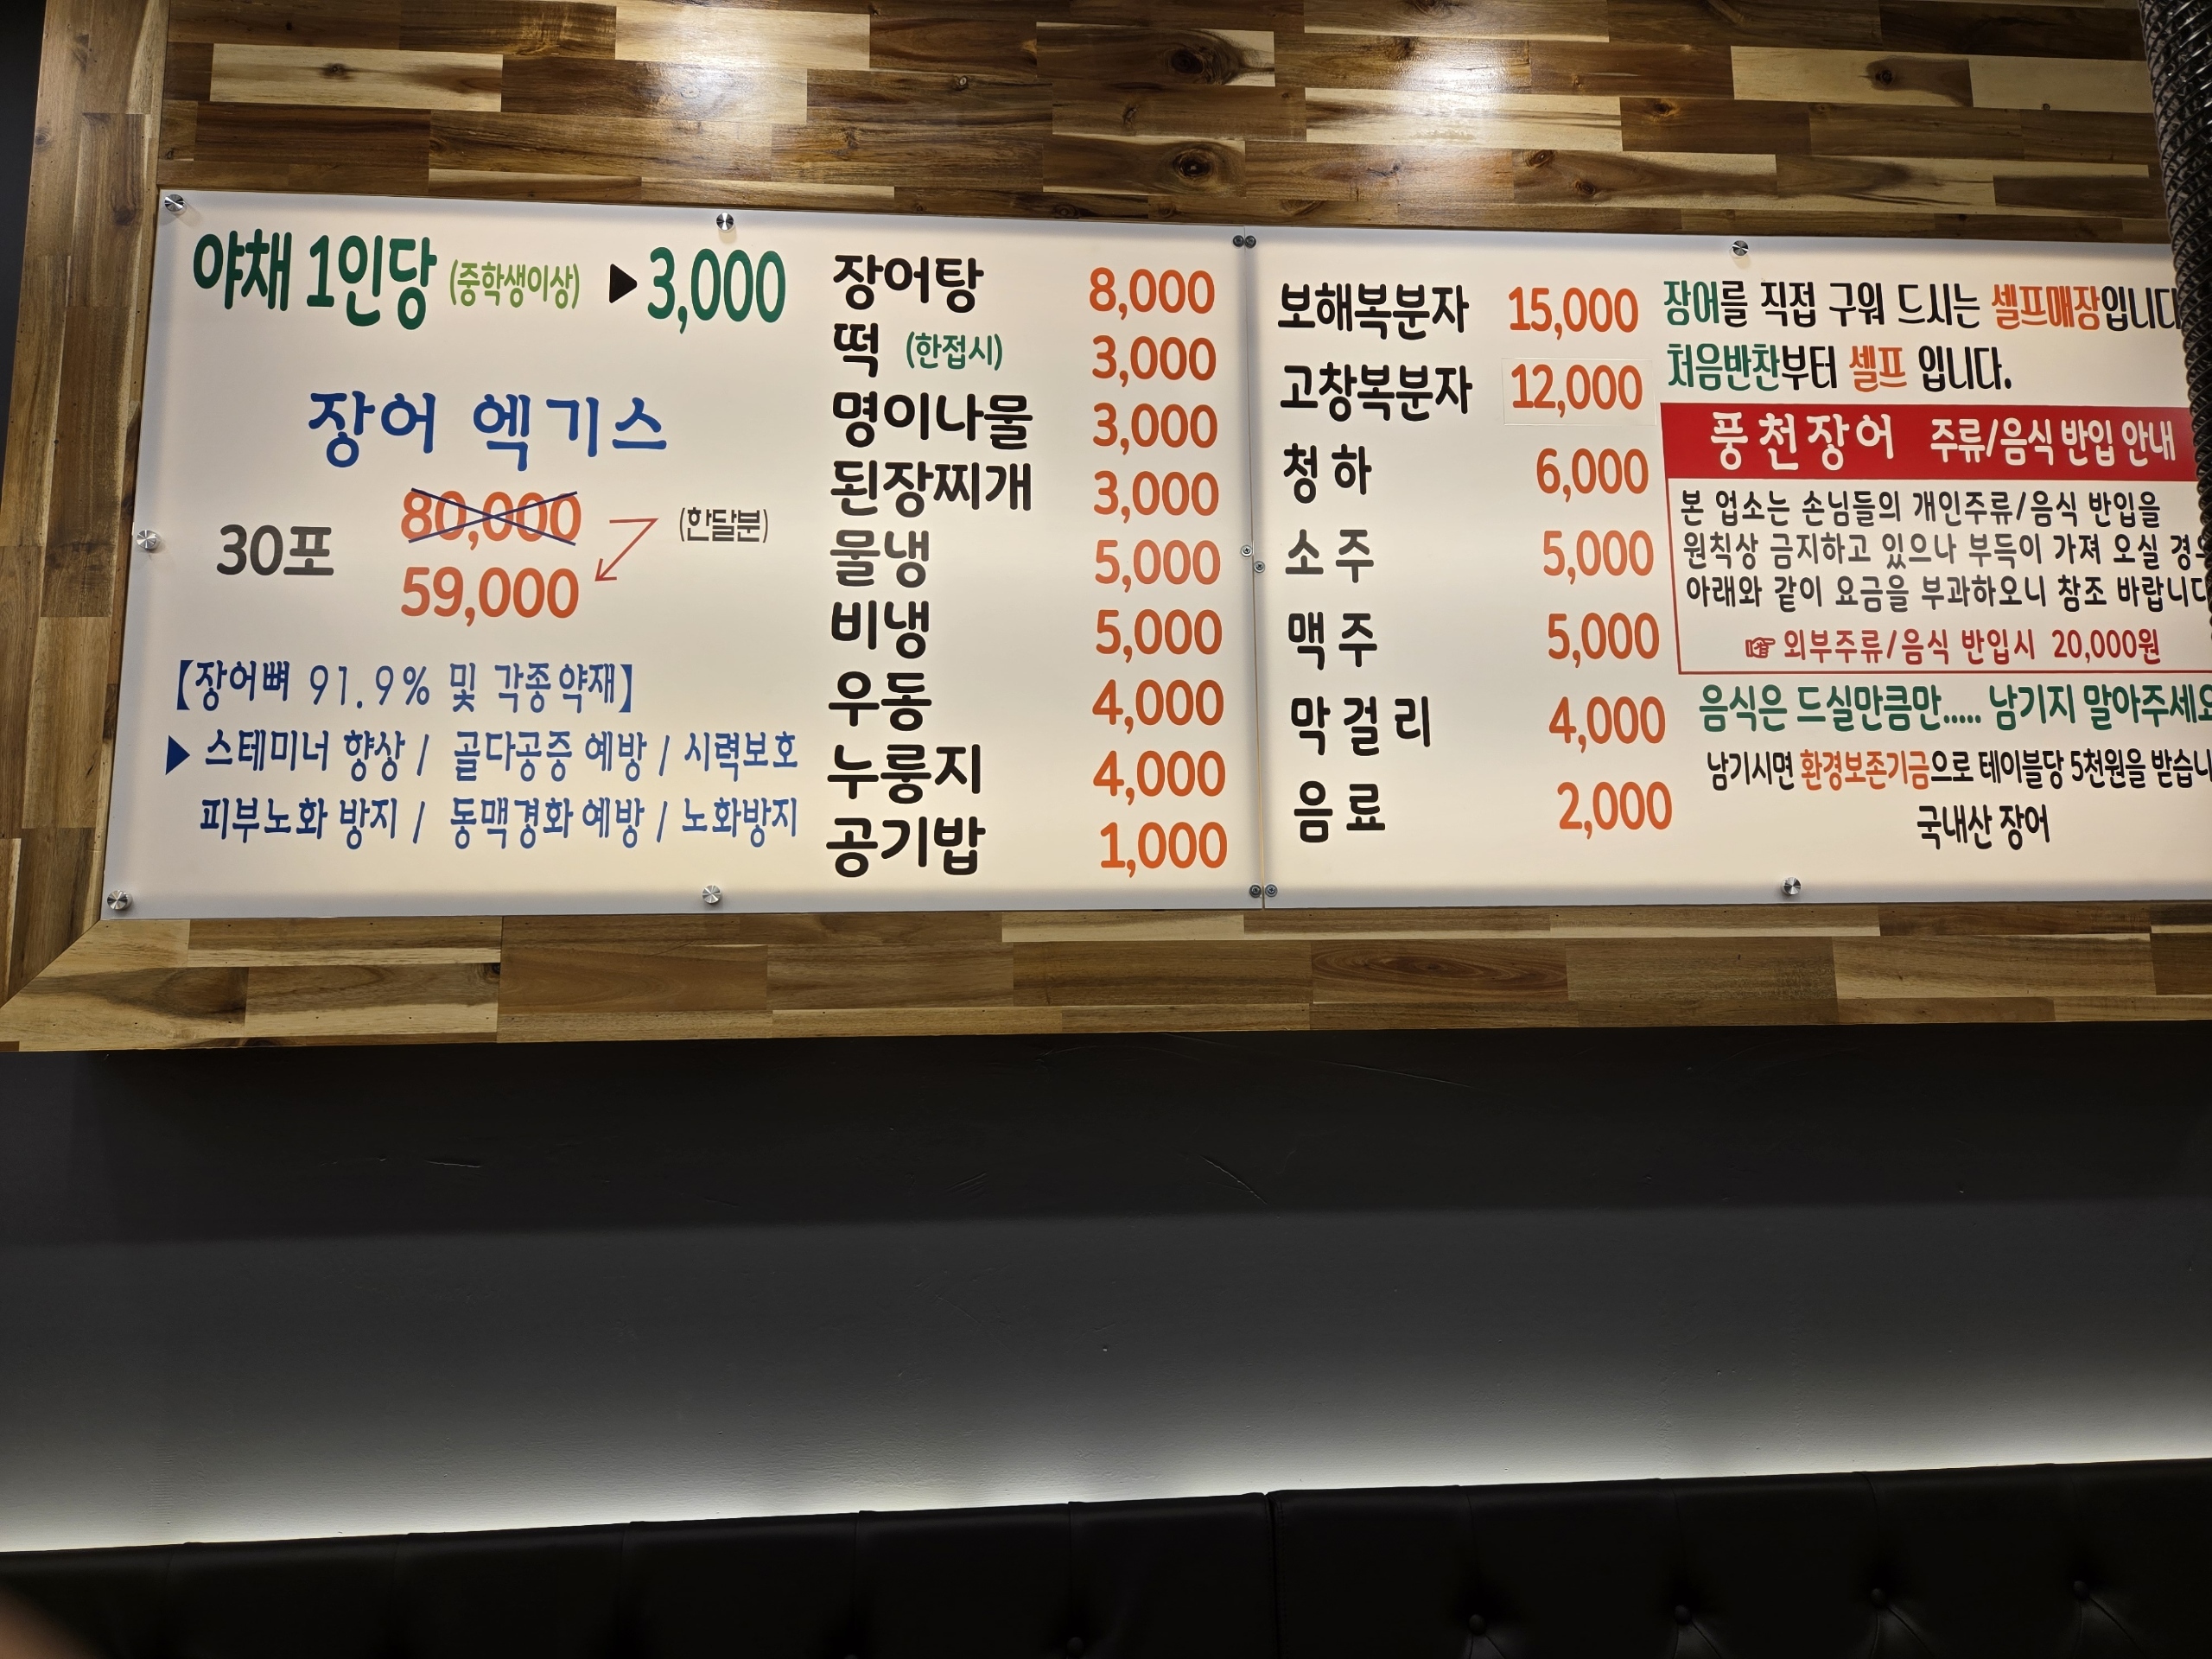 야채 1인당 (중학생이상) ▶ 3,000
장어 엑기스
30포 80,000 (한달분)
59,000
【장어뼈 91.9% 및 각종약재】
▶ 스테미너 향상 / 골다공증 예방 / 시력보호
피부노화 방지 / 동맥경화 예방 / 노화방지
장어탕 8,000
떡 (한접시) 3,000
명이나물 3,000
된장찌개 3,000
물냉 5,000
비냉 5,000
우동 4,000
누룽지 4,000
공기밥 1,000
보해복분자 15,000
고창복분자 12,000
청하 6,000
소주 5,000
맥주 5,000
막걸리 4,000
음료 2,000
장어를 직접 구워 드시는 셀프매장입니다
처음반찬부터 셀프 입니다.
풍천장어 주류/음식 반입 안내
본 업소는 손님들의 개인주류/음식 반입을
원칙상 금지하고 있으나 부득이 가져 오실
아래와 같이 요금을 부과하오니 참조 바랍니다
☞ 외부주류/음식 반입시 20,000원
음식은 드실만큼만..... 남기지 말아주세요
남기시면 환경보존기금으로 테이블당 5천원을
국내산 장어